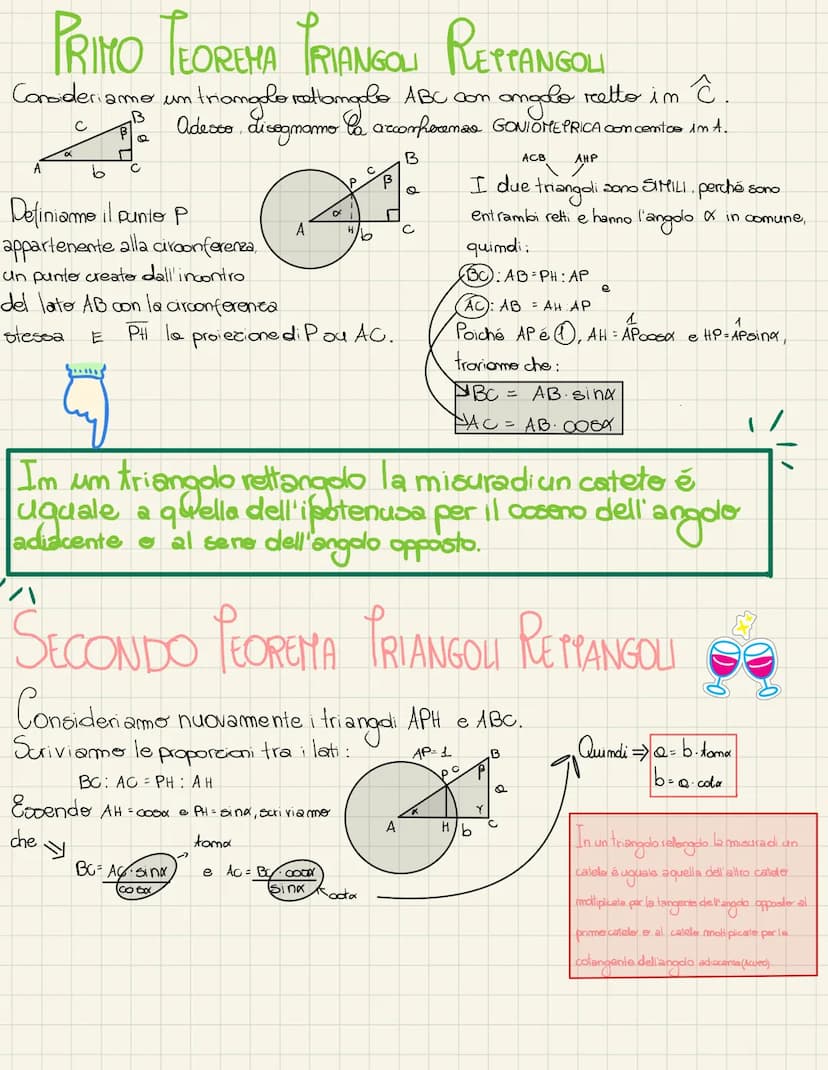 PRIMO TEOREMA TRIANGOLI RETTANGOLI
Consideriamo un triangolo rettangolo ABC con angolo retto in Ĉ.
Adesso, disegnamo la circonferenza GONIOMETRICA con centro in A.
c B β a α A b C
ACB AHP
B c P β a α A H b C
I due triangoli sono SIMILI, perché sono
entrambi retti e hanno l'angolo α in comune,
quindi:
Definiamo il punto P
appartenente alla circonferenza,
un punto creato dall'incontro
del lato AB con la circonferenza
stessa E PH la proiezione di P su AC.
BC : AB = PH : AP
e
AC : AB = AH : AP
Poiché AP é 1, AH = AP cosα e HP = AP sinα,
1 1
troviamo che:
BC = AB · sinα
AC = AB · cosα
In un triangolo rettangolo la misura di un cateto é
uguale a quella dell'ipotenusa per il coseno dell'angolo
adiacente o al seno dell'angolo opposto.
SECONDO TEOREMA TRIANGOLI RETTANGOLI
Consideriamo nuovamente i triangoli APH e ABC.
Scriviamo le proporzioni tra i lati:
BC : AC = PH : AH
Essendo AH = cosα e PH = sinα, scriviamo
che
AP = 1
B P c β a α γ A H b C
tanα
BC = AC · sinα
cosα
e AC = BC · cosα
sinα
cotα
Quindi ⇒ a = b · tanα
b = a · cotα
In un triangolo rettangolo la misura di un
cateto è uguale a quella dell'altro cateto
moltiplicata per la tangente dell'angolo opposto al
primo cateto o al cateto moltiplicato per la
cotangente dell'angolo adiacente